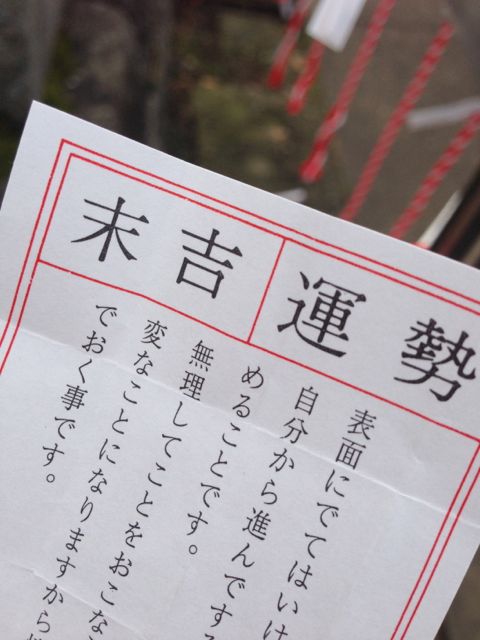 末吉 運勢
表面にでてはいけ
自分から進んです
めることです。
無理してことをおこな
変なことになりますから
でおく事です。